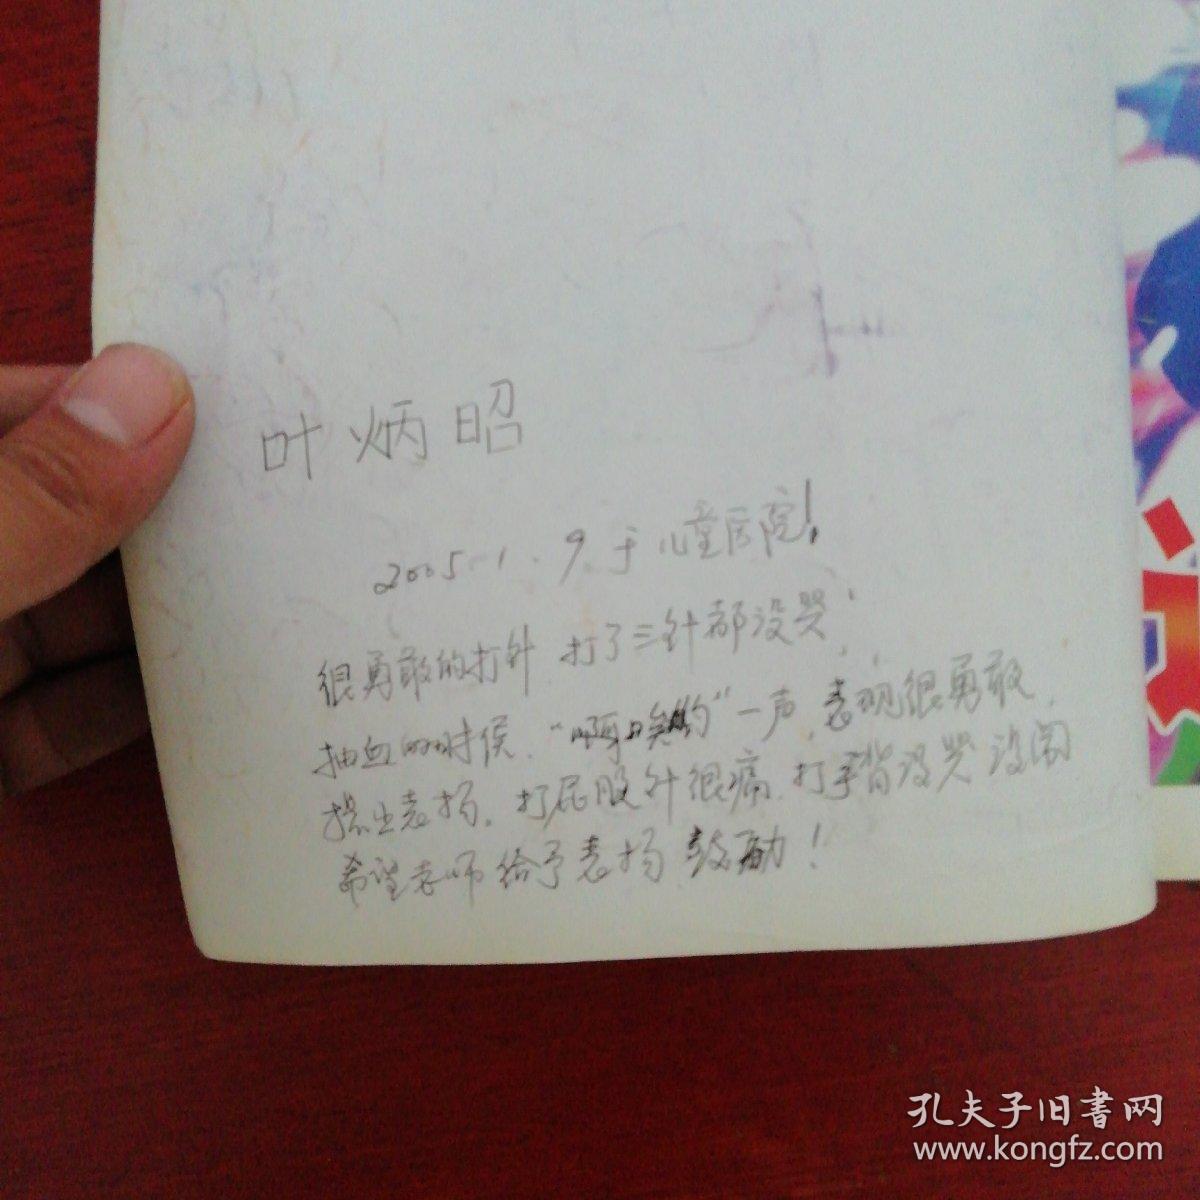 叶炳昭
2005.1.9.于儿童医院!
很勇敢的打针 打了三针都没哭,
抽血的时候."啊哟"一声,表现很勇敢,
提出表扬.打屁股针很痛.打手背没哭没闹
希望老师给予表扬 鼓励!
孔夫子旧书网
www.kongfz.com